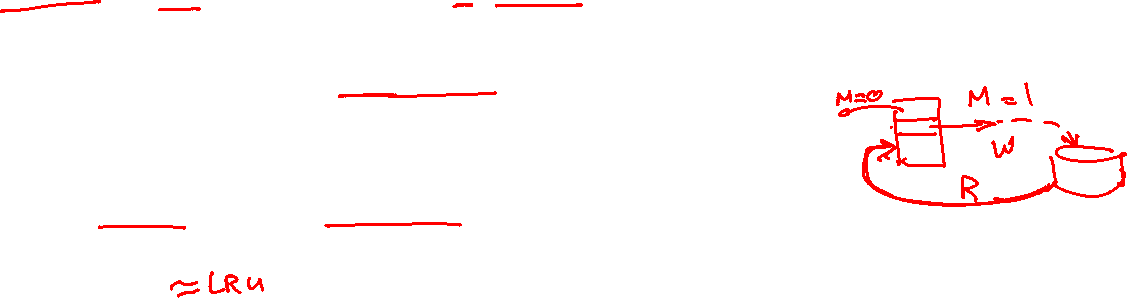 M=0
M=1
W
R
≈LRU